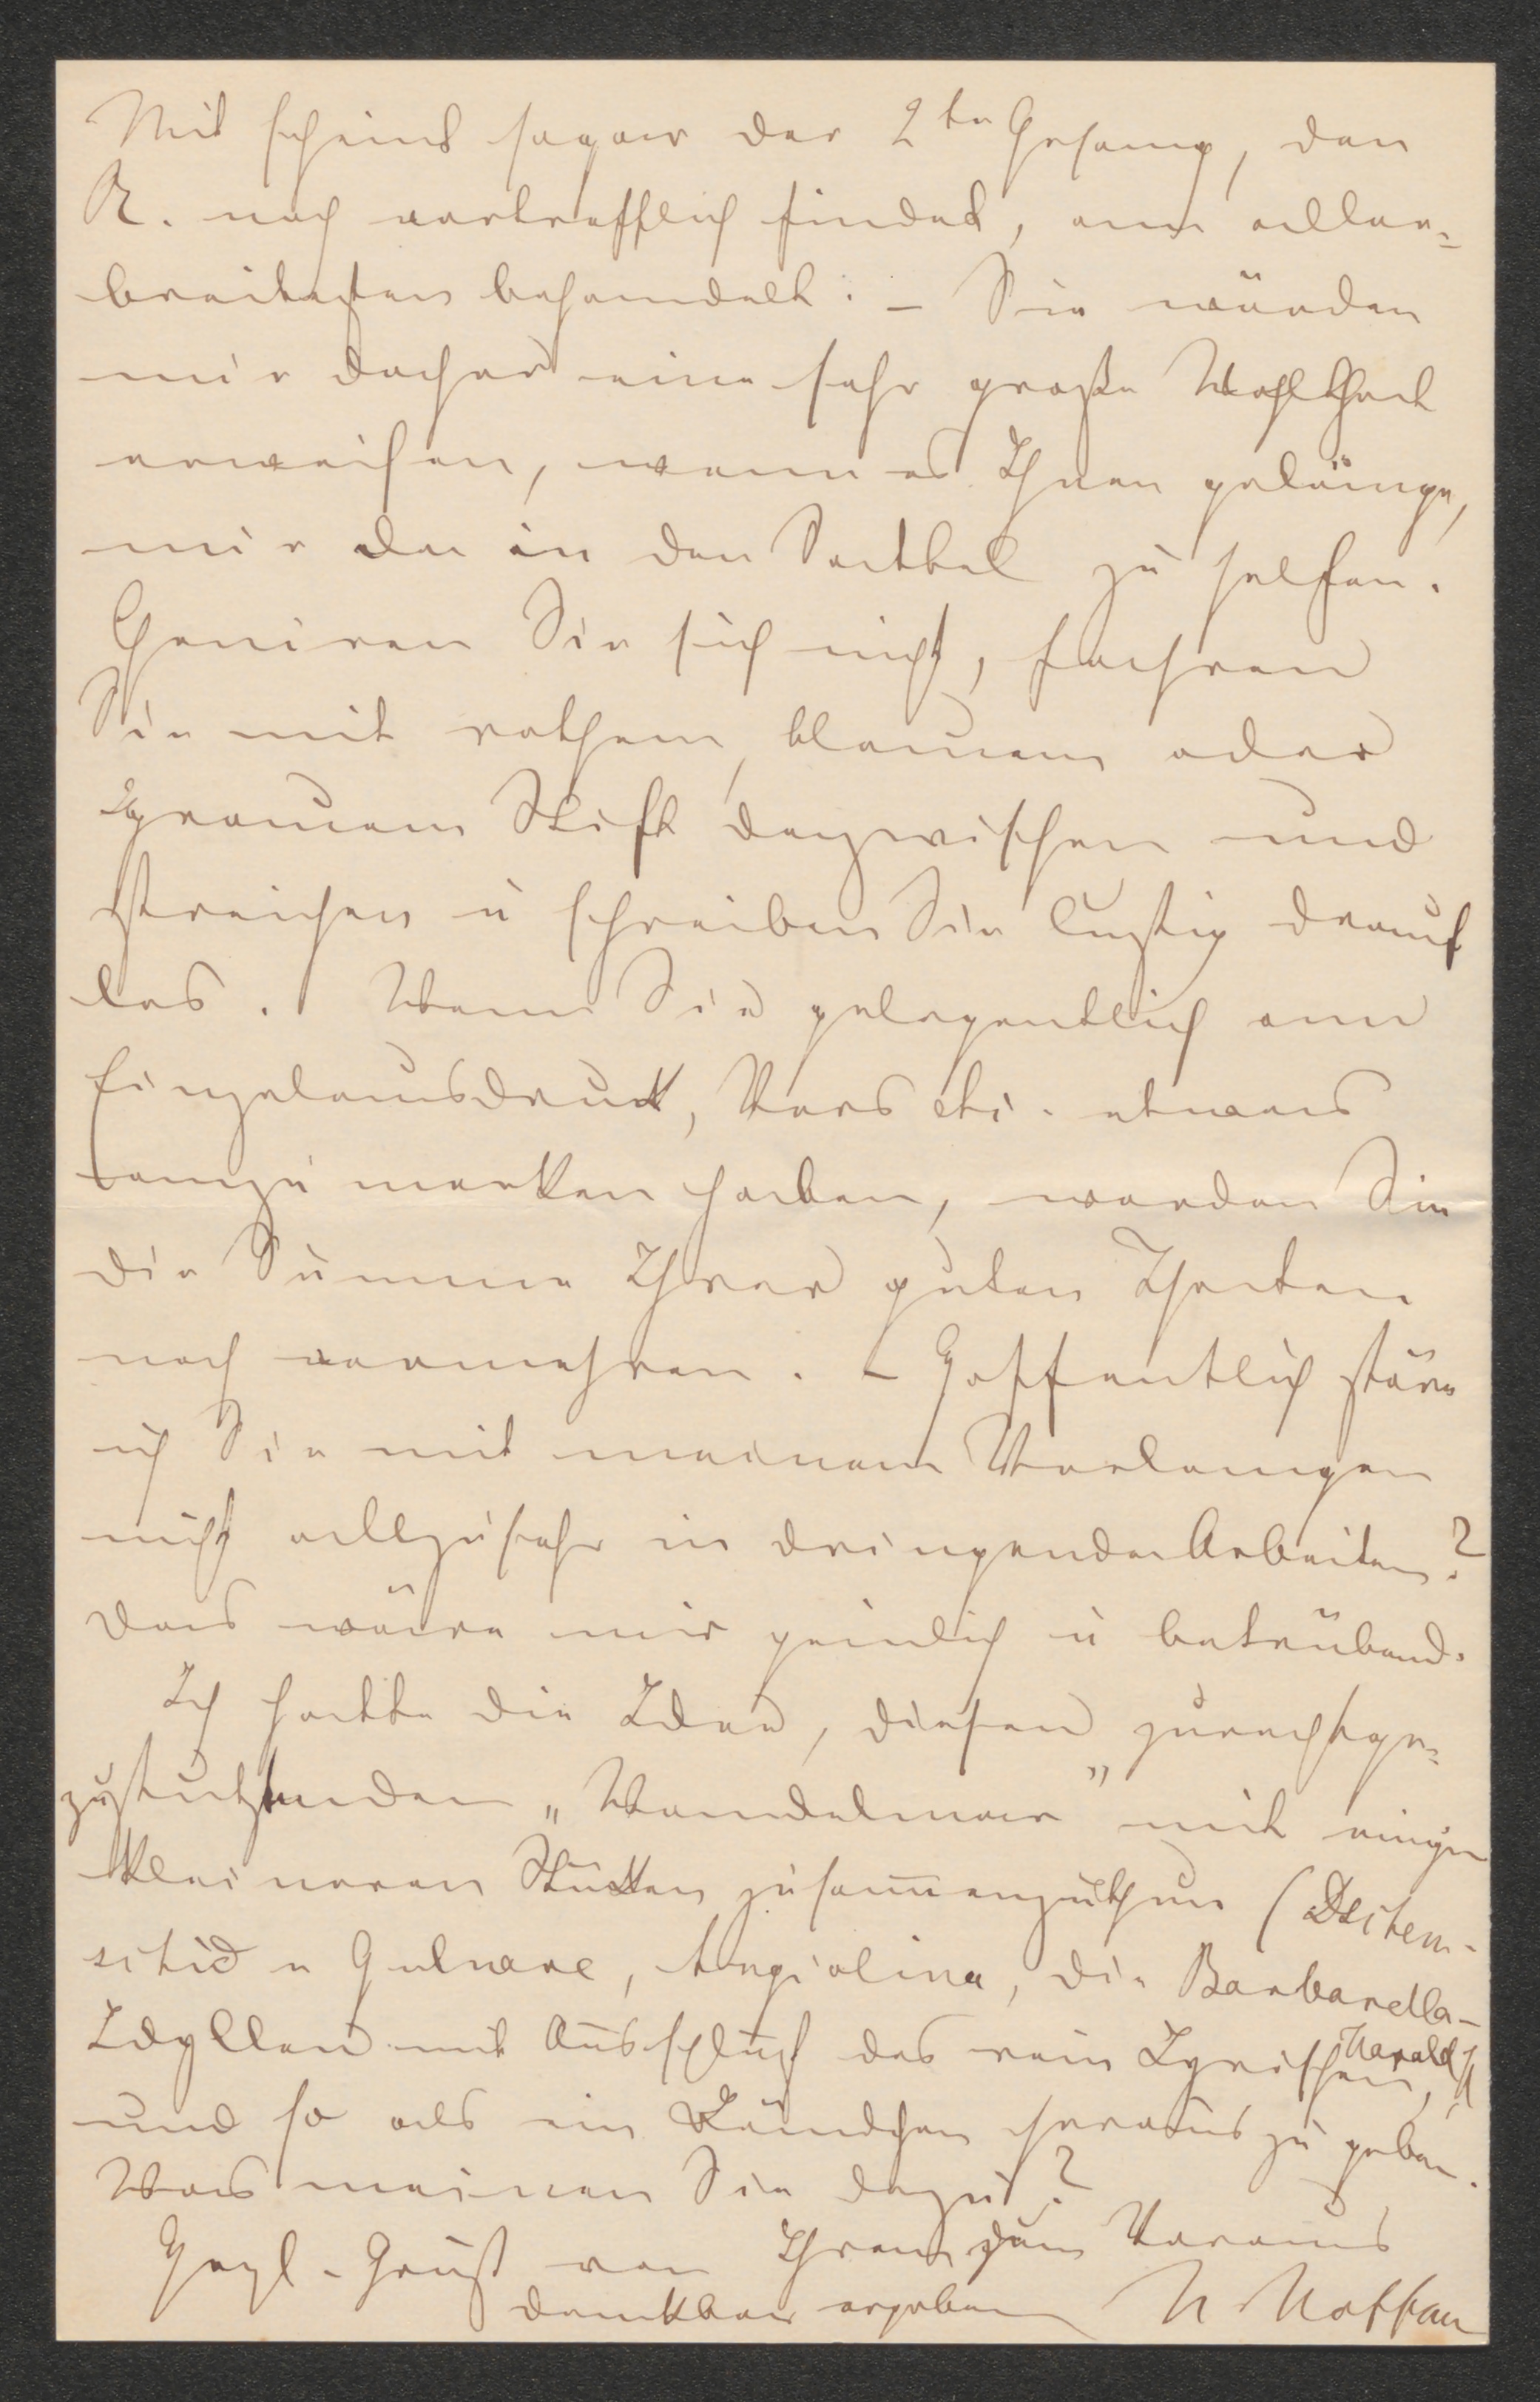 Mir scheint sogar der 2te Gesang, den
R. noch vortrefflich findet, am aller-
breitesten behandelt. – Sie würden
mir daher eine sehr große Wohlthat
erweisen, wenn es Ihnen gelänge,
mir da in den Sattel zu helfen.
Geniren Sie sich nicht, fahren
Sie mit rothem, blauem oder
grauem Stift dazwischen und
streichen u schreiben Sie lustig drauf
los. Wenn Sie gelegentlich am
Einzelausdruck, Vers etc. etwas
anzumerken haben, werden Sie
die Summe Ihrer guten Thaten
noch vermehren. – Hoffentlich störe
ich Sie mit meinem Verlangen
nicht allzusehr in dringenden Arbeiten?
Das wäre mir peinlich u betrübend.
Ich hatte die Idee, diesen zurechtge-
zustutzenden „Wandelmar" mit einigen
kleineren Stücken zusammenzuthun (Dschem-
schid u Gulnare, Angiolina, die Barbarella-
Idyllen mit Ausschluß des rein Lyrischen, Harald)
und so als ein Bändchen herauszugeben.
Was meinen Sie dazu?
Herzl. Gruß von Ihrem zum Voraus
dankbar ergebenen